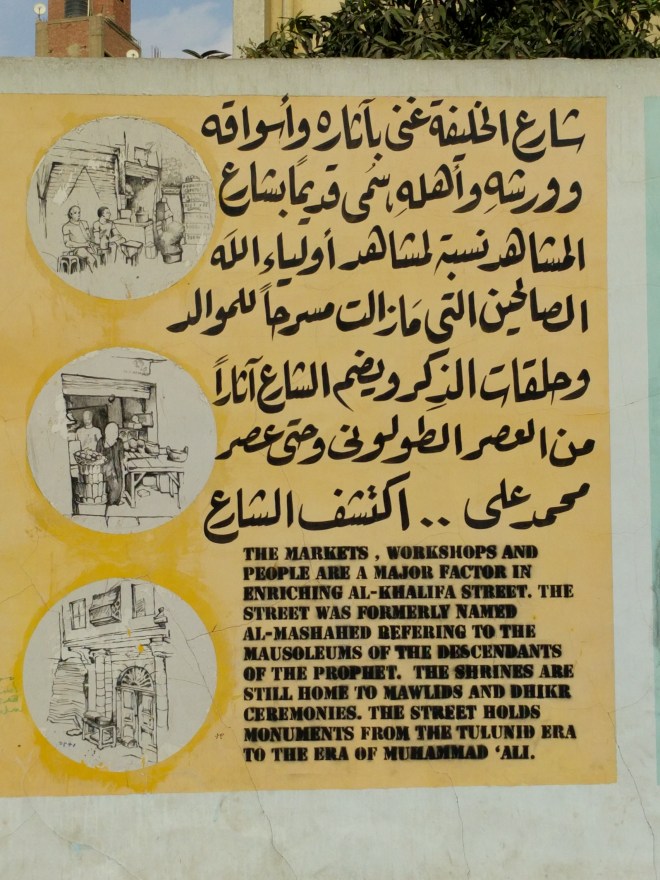 شارع الخليفة غني بآثاره وأسواقه
وورشهِ وأهلهِ يسُمى قديمًا بشارع
المشاهد نسبة لمشاهد أولياء الله
الصالحين التي مَازالت مسرحاً للموالد
وحلقات الذِكر ويضم الشارع آثاراً
من العصر الطولوني وحتى عصر
محمد على .. اكتشف الشارع
THE MARKETS , WORKSHOPS AND
PEOPLE ARE A MAJOR FACTOR IN
ENRICHING AL-KHALIFA STREET. THE
STREET WAS FORMERLY NAMED
AL-MASHAHED REFERING TO THE
MAUSOLEUMS OF THE DESCENDANTS
OF THE PROPHET. THE SHRINES ARE
STILL HOME TO MAWLIDS AND DHIKR
CEREMONIES. THE STREET HOLDS
MONUMENTS FROM THE TULUNID ERA
TO THE ERA OF MUHAMMAD ‘ALI.